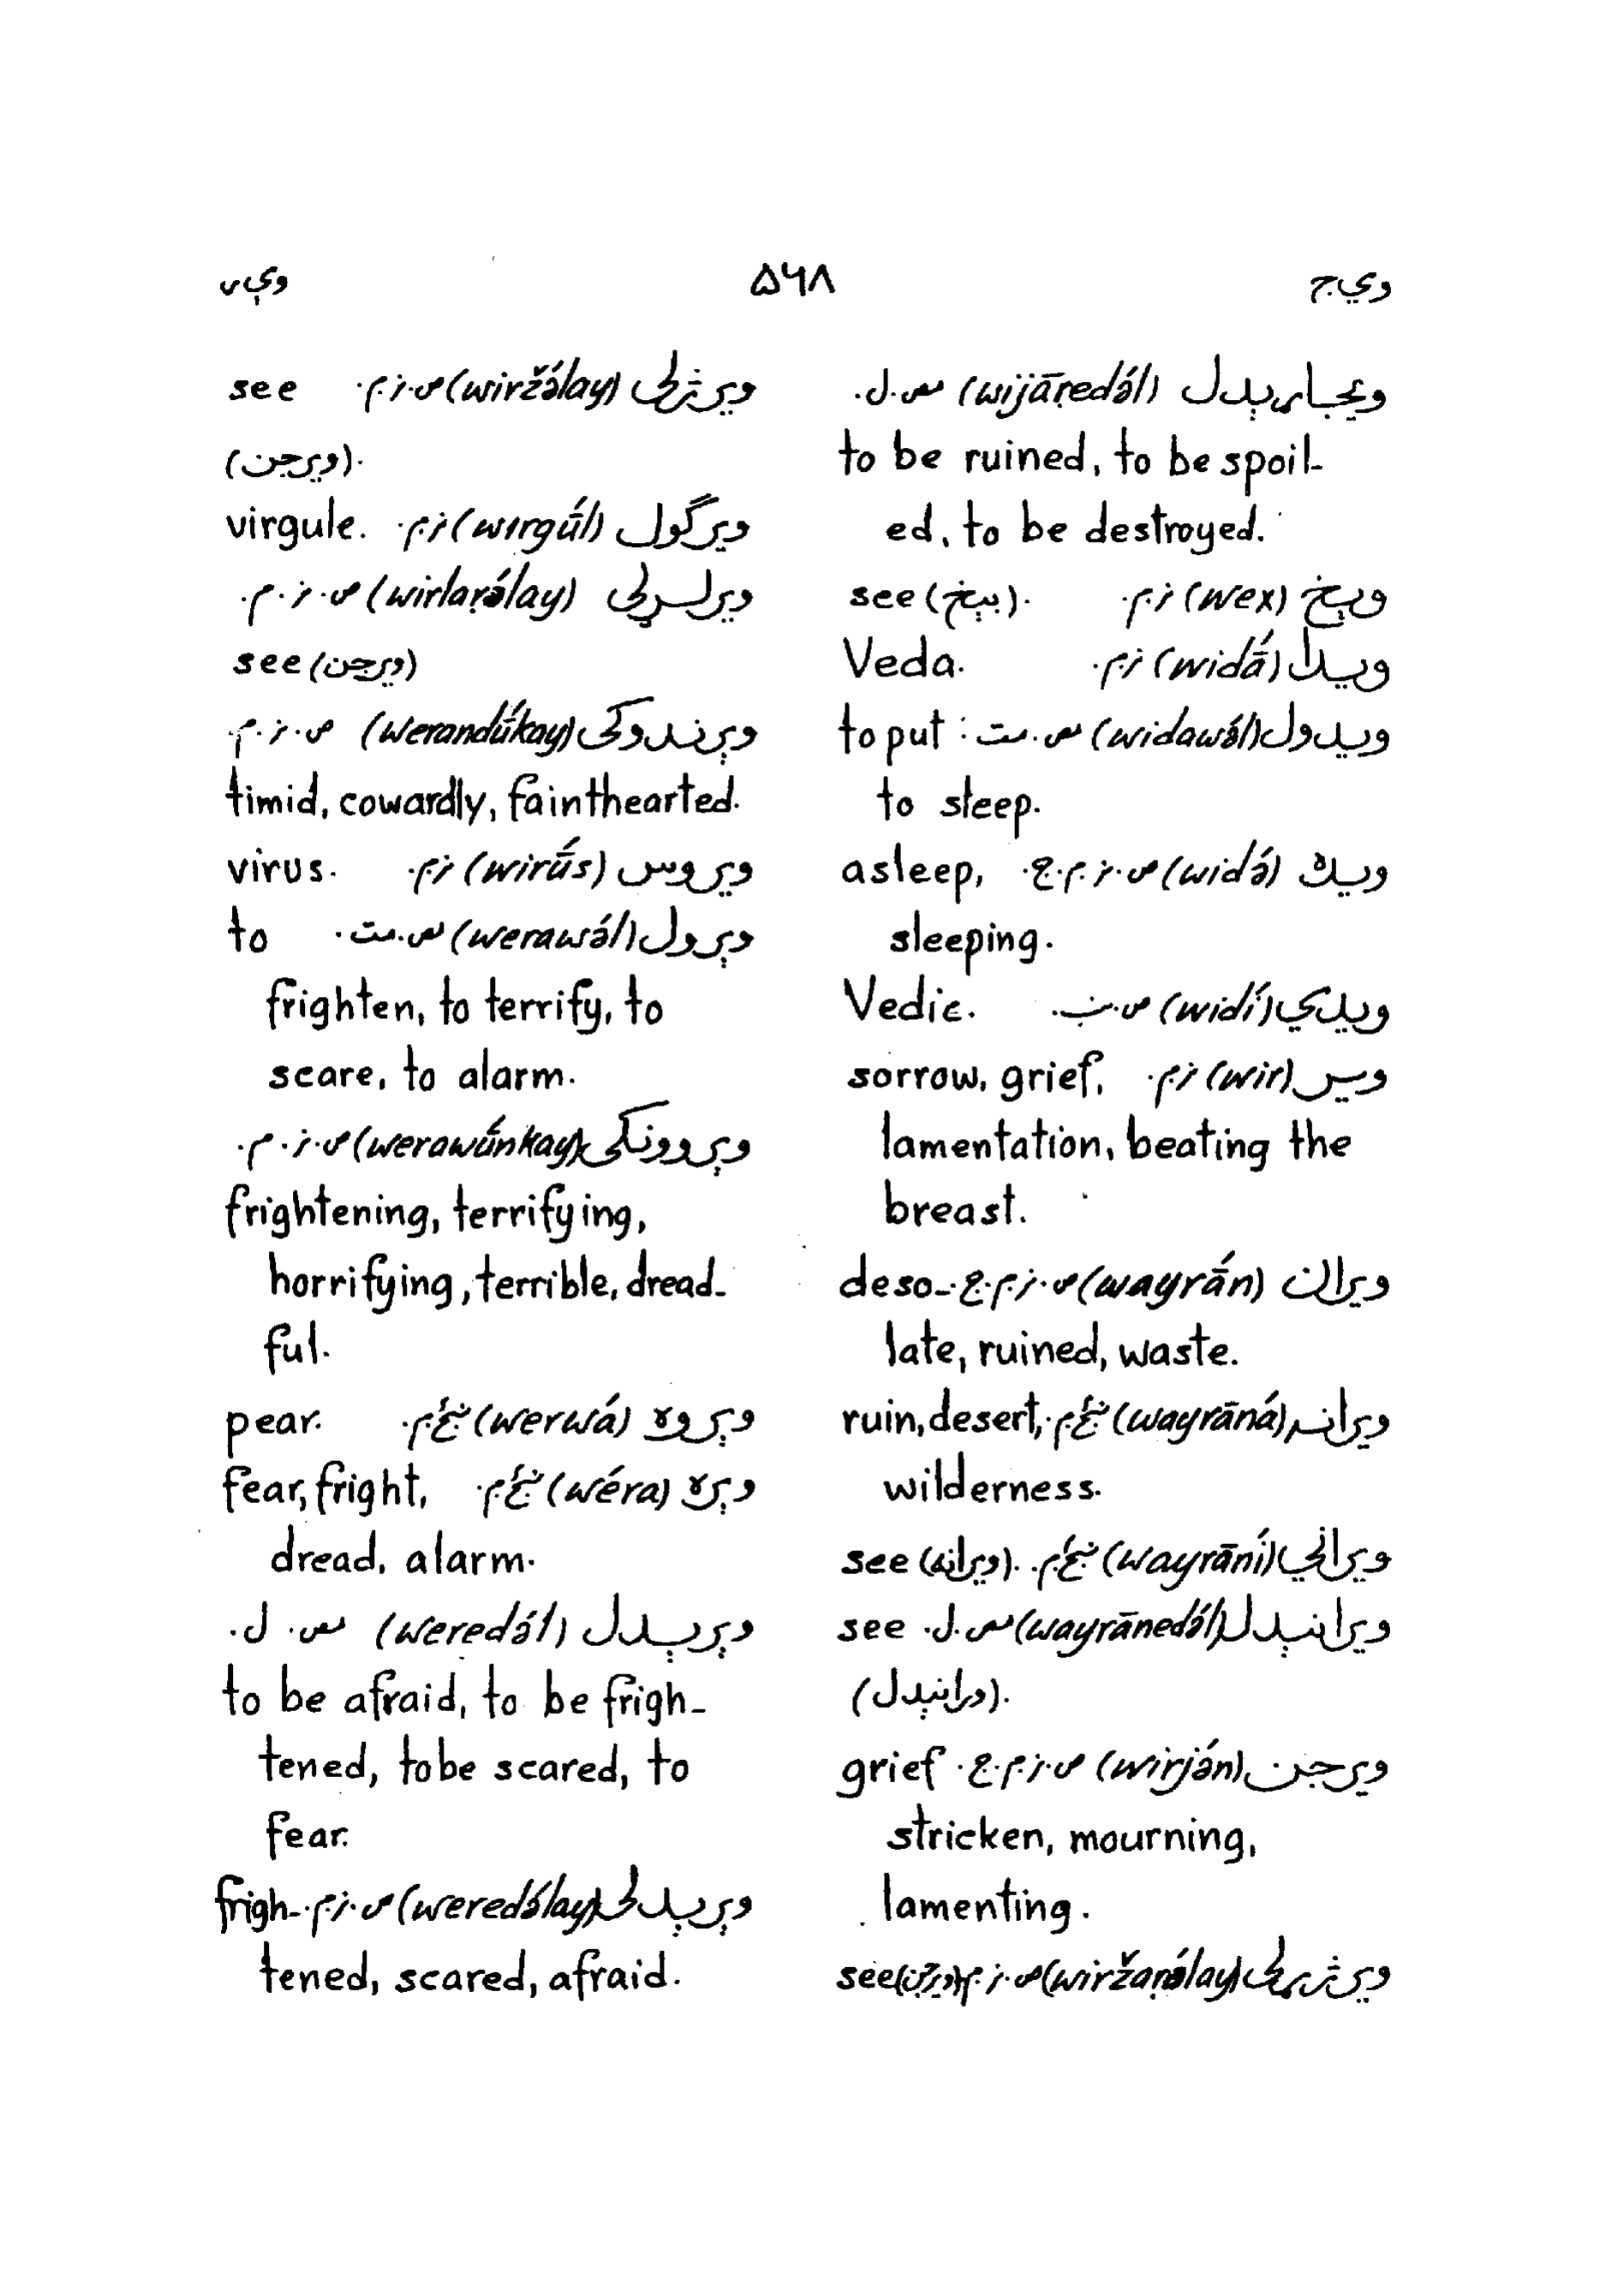 ويج ۵۶۸ وېر
ويجاړېدل (wijāṛedə́l) مص.ل.
to be ruined, to be spoil-
ed, to be destroyed.
وېخ (wex) ز.م. see (بېخ).
ويدا (widā́) ز.م. Veda.
ويدول (widawə́l) مص.مت. to put :
to sleep.
ويده (widə́) ص.ز.م.ج. asleep,
sleeping.
ويدي (widí) ص.ن. Vedic.
وير (wir) ز.م. sorrow, grief,
lamentation, beating the
breast.
ويران (wayrā́n) ص.ز.م.ج. deso-
late, ruined, waste.
ويرانه (wayrāná) ښځ.م. ruin, desert,
wilderness.
ويراني (wayrāní) ښځ.م. see (ويرانه).
ويرانېدل (wayrānedə́l) مص.ل. see
(ورانېدل).
ويرجن (wirjə́n) ص.ز.م.ج. grief
stricken, mourning,
lamenting.
ويرژړلی (wiržaṛə́lay) ص.ز.م. see (ويرجن)
ويرژلی (wiržə́lay) ص.ز.م. see
(ويرجن).
ويرګول (wirgū́l) ز.م. virgule.
ويرلړلی (wirlaṛə́lay) ص.ز.م.
see (ويرجن)
وېرندوکی (werandū́kay) ص.ز.م.
timid, cowardly, fainthearted.
ويروس (wirū́s) ز.م. virus.
وېرول (werawə́l) مص.مت. to
frighten, to terrify, to
scare, to alarm.
وېروونکی (werawū́nkay) ص.ز.م.
frightening, terrifying,
horrifying, terrible, dread-
ful.
وېروه (werwá) ښځ.م. pear.
وېره (wéra) ښځ.م. fear, fright,
dread, alarm.
وېرېدل (weredə́l) مص.ل.
to be afraid, to be frigh-
tened, to be scared, to
fear.
وېرېدلی (weredə́lay) ص.ز.م. frigh-
tened, scared, afraid.